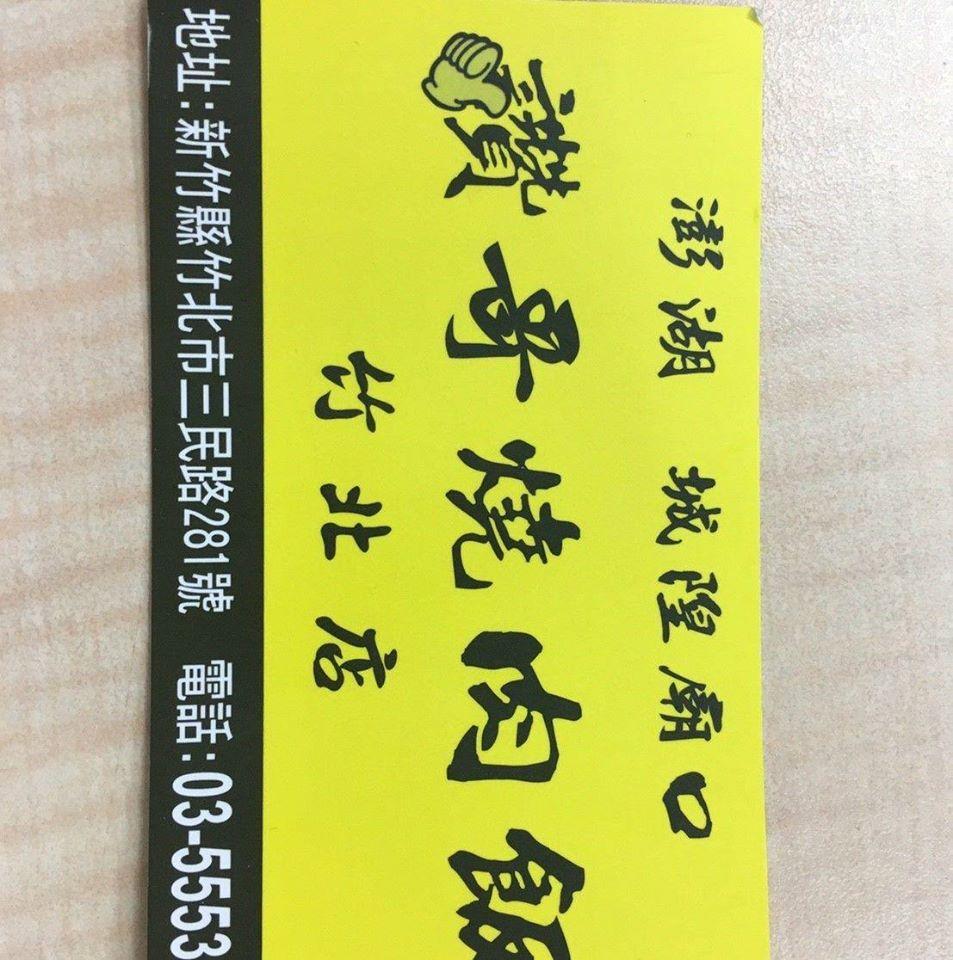 澎湖 城隍廟口
讚哥燒肉飯
竹北店
地址:新竹縣竹北市三民路281號 電話:03-5553